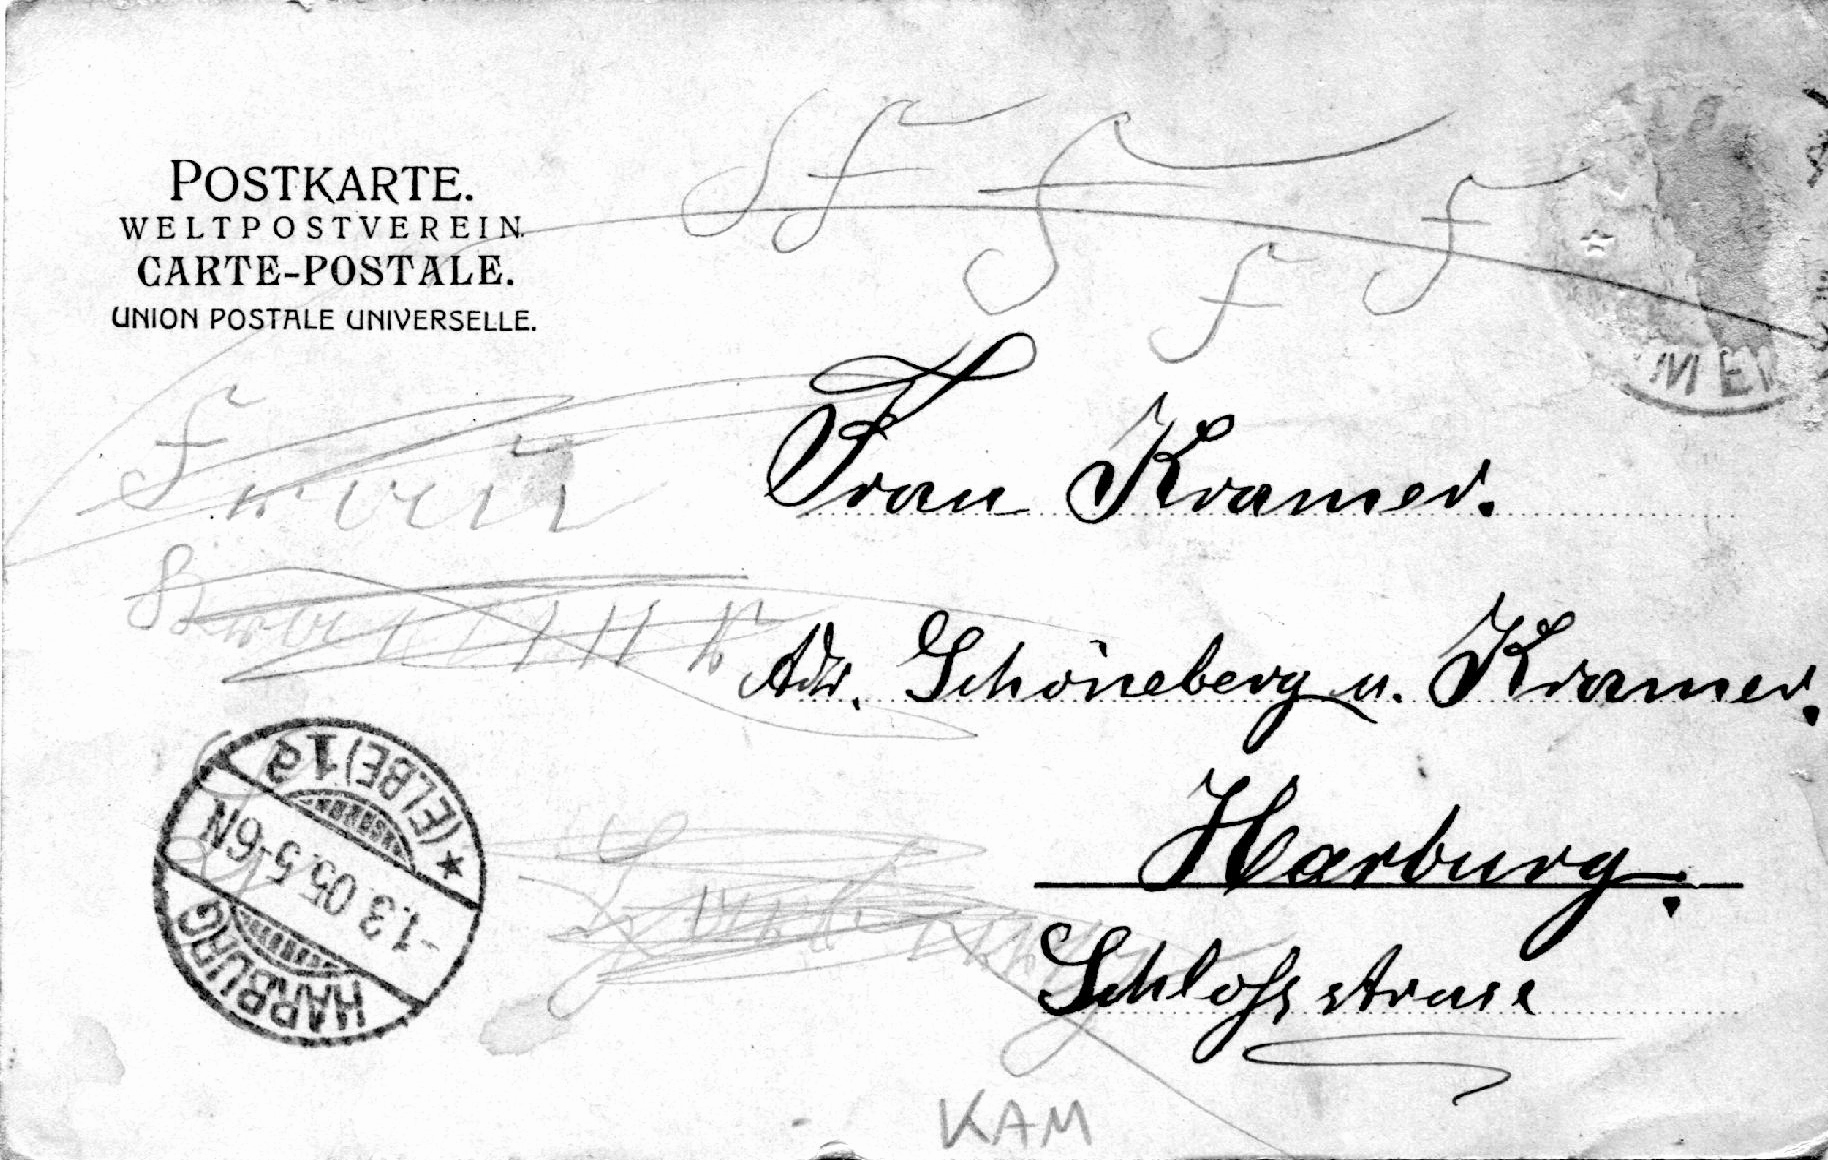 POSTKARTE.
WELTPOSTVEREIN.
CARTE-POSTALE.
UNION POSTALE UNIVERSELLE.
F F F F
Frau Kramer.
F
Frau
Adr. Schöneberg u. Kramer.
Harburg.
Schloßstrasse
HARBURG
-1.3.05.5-6N
★ (ELBE) 1a
KAM